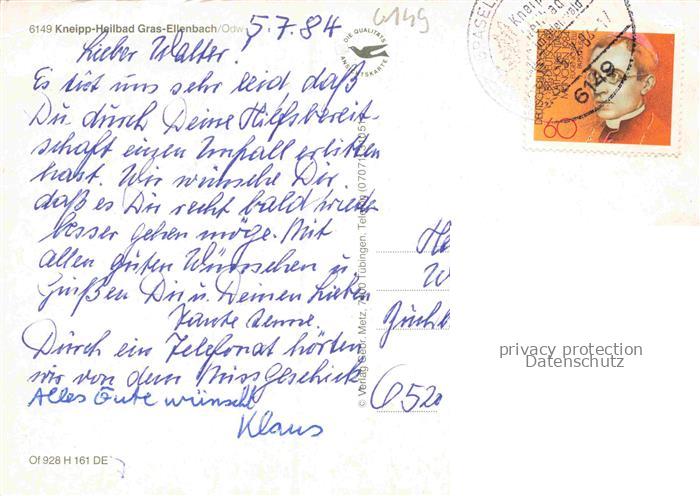 6149 Kneipp-Heilbad Gras-Ellenbach/Odw.
5.7.84
6149
Lieber Walter.
Es tut uns sehr leid, daß
Du durch Deine Hilfsbereit-
schaft einen Unfall erlitten
hast. Wir wünsche Dir
daß es Dir recht bald wieder
besser gehen möge. Mit
allen guten Wünschen u.
Grüßen Dir u. Deinen Lieben
Tante
Durch ein Telefonat hörten
wir von dem Missgeschick
Alles Gute wünscht
Klaus
Of 928 H 161 DE
DIE QUALITÄTS
ANSICHTSKARTE
© Verlag Gebr. Metz, 7400 Tübingen, Telefon (0707
He
W
652
60
6149
privacy protection
Datenschutz